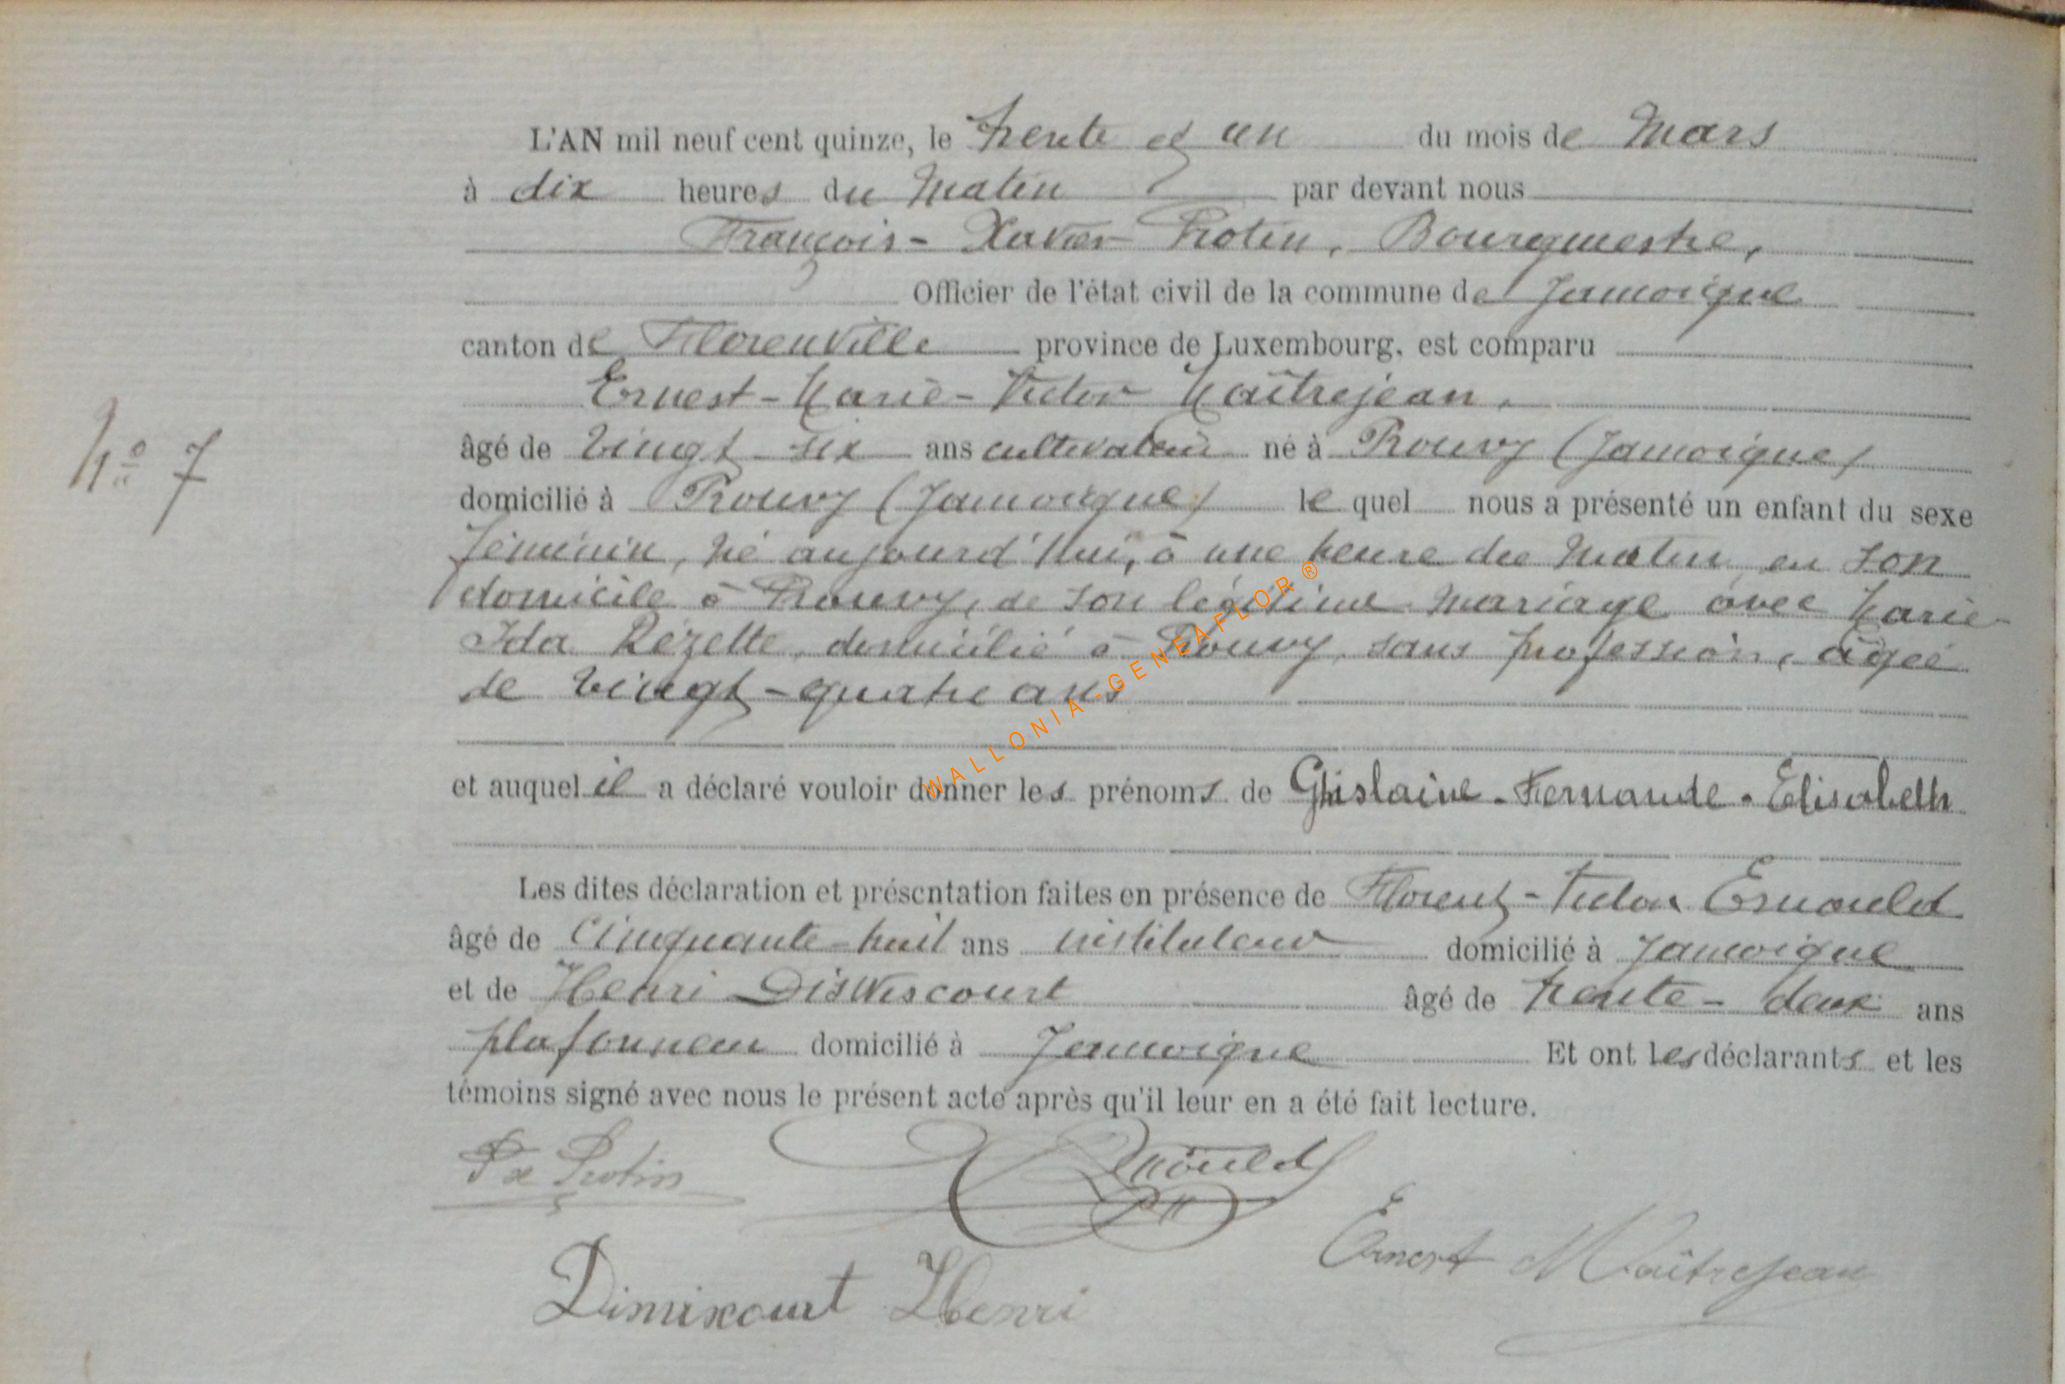 L'AN mil neuf cent quinze, le trente et un du mois de Mars
à dix heures du Matin par devant nous
François-Xavier Protin, Bourgmestre,
Officier de l'état civil de la commune de Jamoigne
canton de Florenville province de Luxembourg, est comparu
Ernest-Marie-Victor Maîtrejean,
N° 7
âgé de vingt-six ans cultivateur né à Prouvy (Jamoigne)
domicilié à Prouvy (Jamoigne) le quel nous a présenté un enfant du sexe
féminin, né aujourd'hui, à une heure du Matin, en son
domicile à Prouvy, de son légitime mariage avec Marie-
Ida Rézette, domicilié à Prouvy, sans profession, âgée
de vingt-quatre ans
WALLONIA-GENEAFLOR ®
et auquel il a déclaré vouloir donner les prénoms de Ghislaine-Fernande-Elisabeth
Les dites déclaration et présentation faites en présence de Florent-Victor Ernould
âgé de Cinquante-huit ans instituteur domicilié à Jamoigne
et de Henri âgé de trente-deux ans
plafonneur domicilié à Jamoigne Et ont les déclarants et les
témoins signé avec nous le présent acte après qu'il leur en a été fait lecture.
Fx Protin
Ernould
Ernest Maîtrejean
Henri